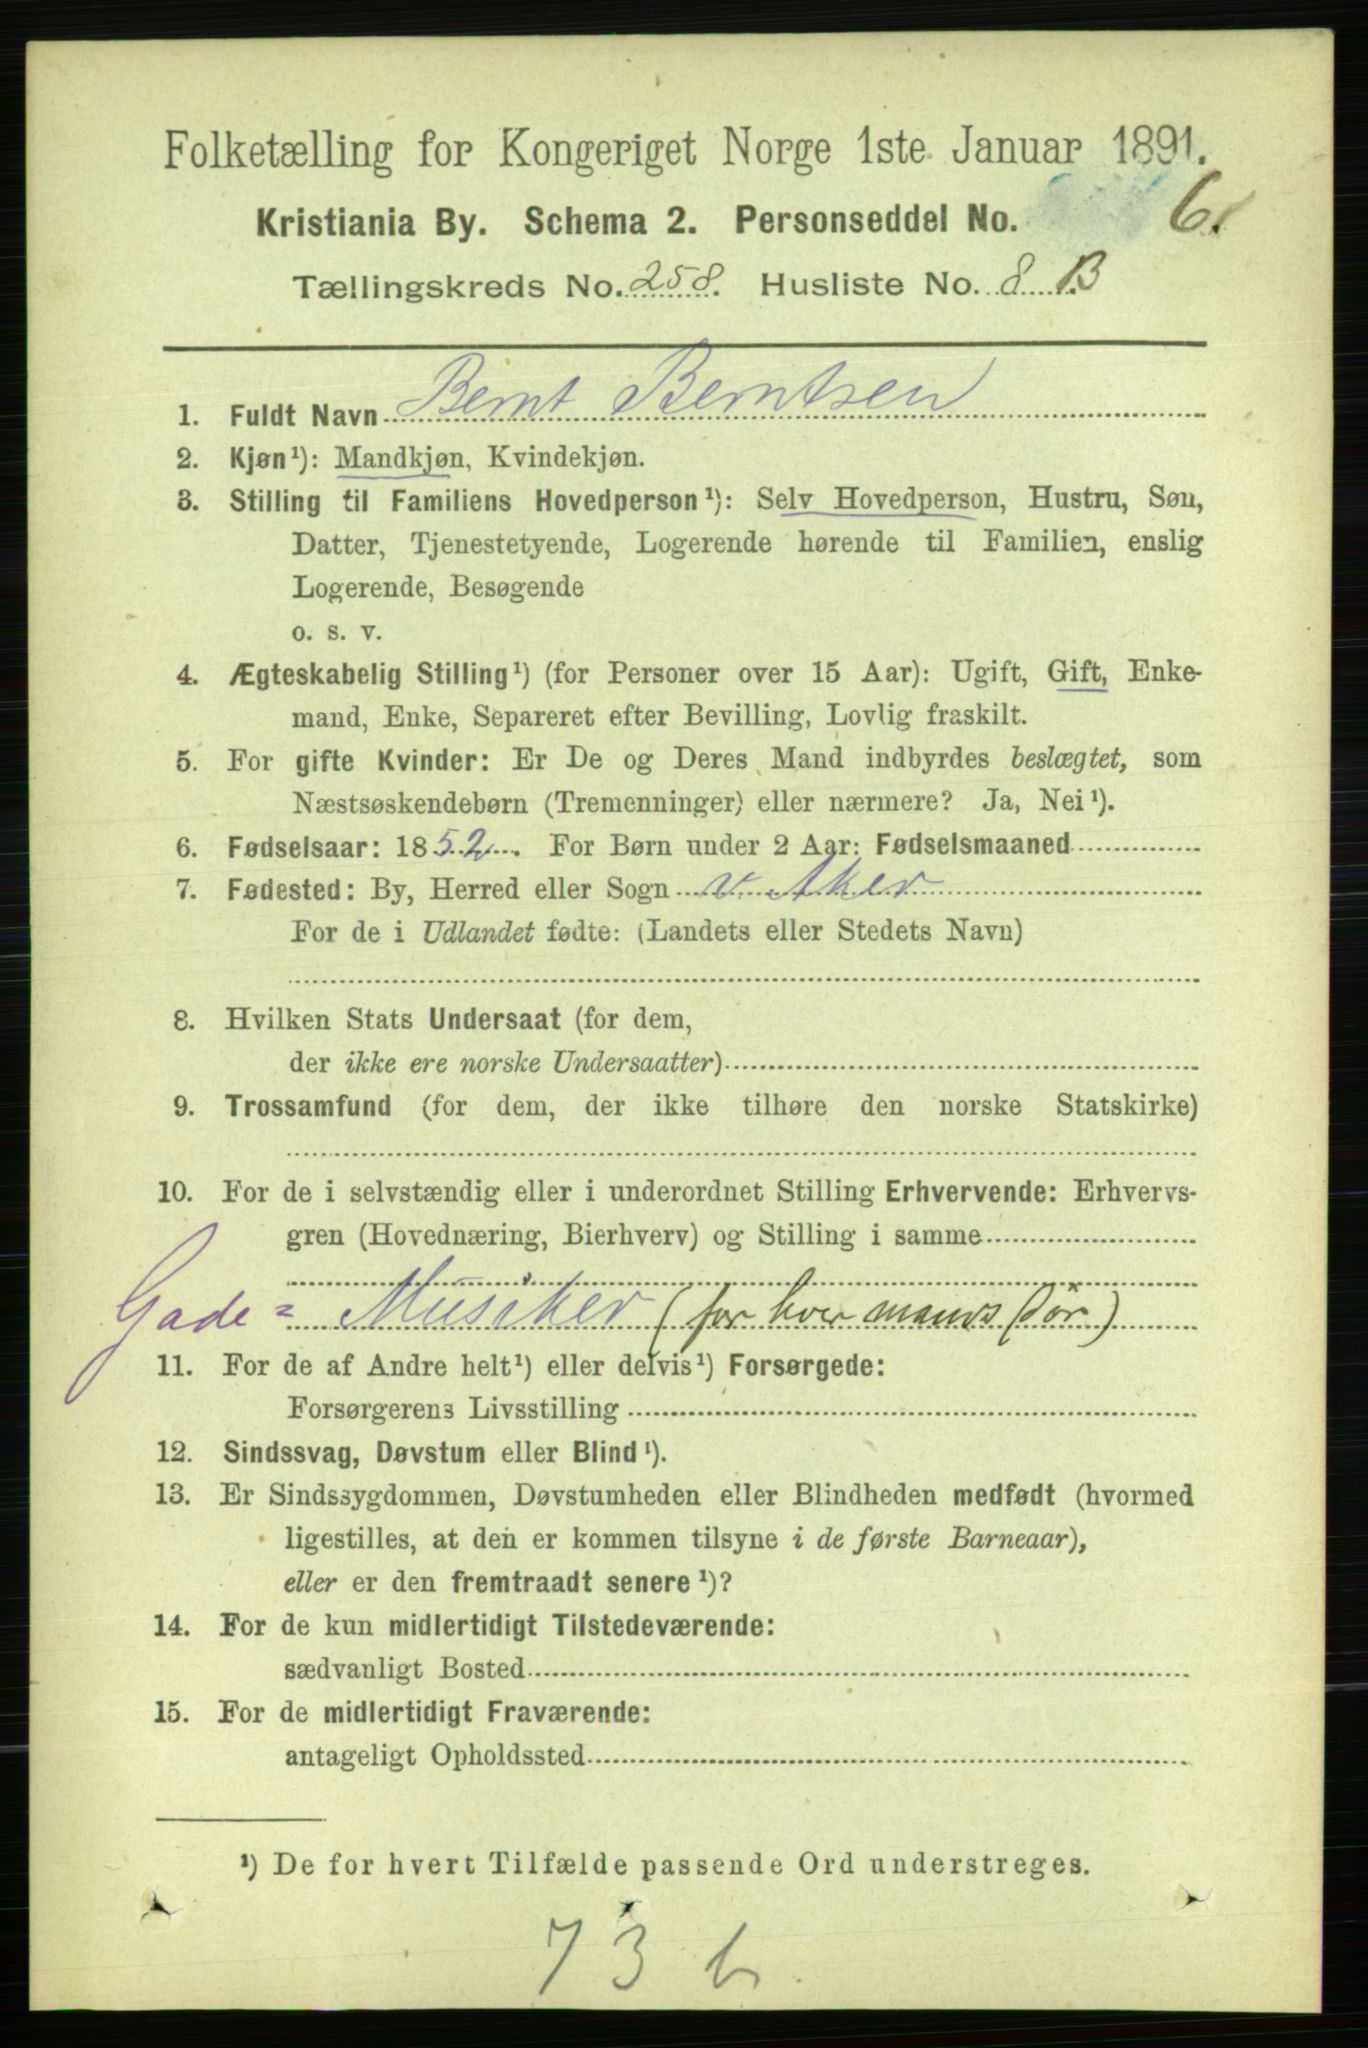 Folketælling for Kongeriget Norge 1ste Januar 1891.
Kristiania By. Schema 2. Personseddel No. 6.
Tællingskreds No. 258. Husliste No. 8 B
1. Fuldt Navn Bernt Berntsen
2. Kjøn¹): Mandkjøn, Kvindekjøn.
3. Stilling til Familiens Hovedperson¹): Selv Hovedperson, Hustru, Søn,
Datter, Tjenestetyende, Logerende hørende til Familien, enslig
Logerende, Besøgende
o. s. v.
4. Ægteskabelig Stilling¹) (for Personer over 15 Aar): Ugift, Gift, Enke-
mand, Enke, Separeret efter Bevilling, Lovlig fraskilt.
5. For gifte Kvinder: Er De og Deres Mand indbyrdes beslægtet, som
Næstsøskendebørn (Tremenninger) eller nærmere? Ja, Nei¹).
6. Fødselsaar: 1852. For Børn under 2 Aar: Fødselsmaaned
7. Fødested: By, Herred eller Sogn v. Aker
For de i Udlandet fødte: (Landets eller Stedets Navn)
8. Hvilken Stats Undersaat (for dem,
der ikke ere norske Undersaatter)
9. Trossamfund (for dem, der ikke tilhøre den norske Statskirke)
10. For de i selvstændig eller i underordnet Stilling Erhvervende: Erhvervs-
gren (Hovednæring, Bierhverv) og Stilling i samme
Gade= Musiker (for hver mands Dør.)
11. For de af Andre helt¹) eller delvis¹) Forsørgede:
Forsørgerens Livsstilling
12. Sindssvag, Døvstum eller Blind¹).
13. Er Sindssygdommen, Døvstumheden eller Blindheden medfødt (hvormed
ligestilles, at den er kommen tilsyne i de første Barneaar),
eller er den fremtraadt senere¹)?
14. For de kun midlertidigt Tilstedeværende:
sædvanligt Bosted
15. For de midlertidigt Fraværende:
antageligt Opholdssted
¹) De for hvert Tilfælde passende Ord understreges.
73 b